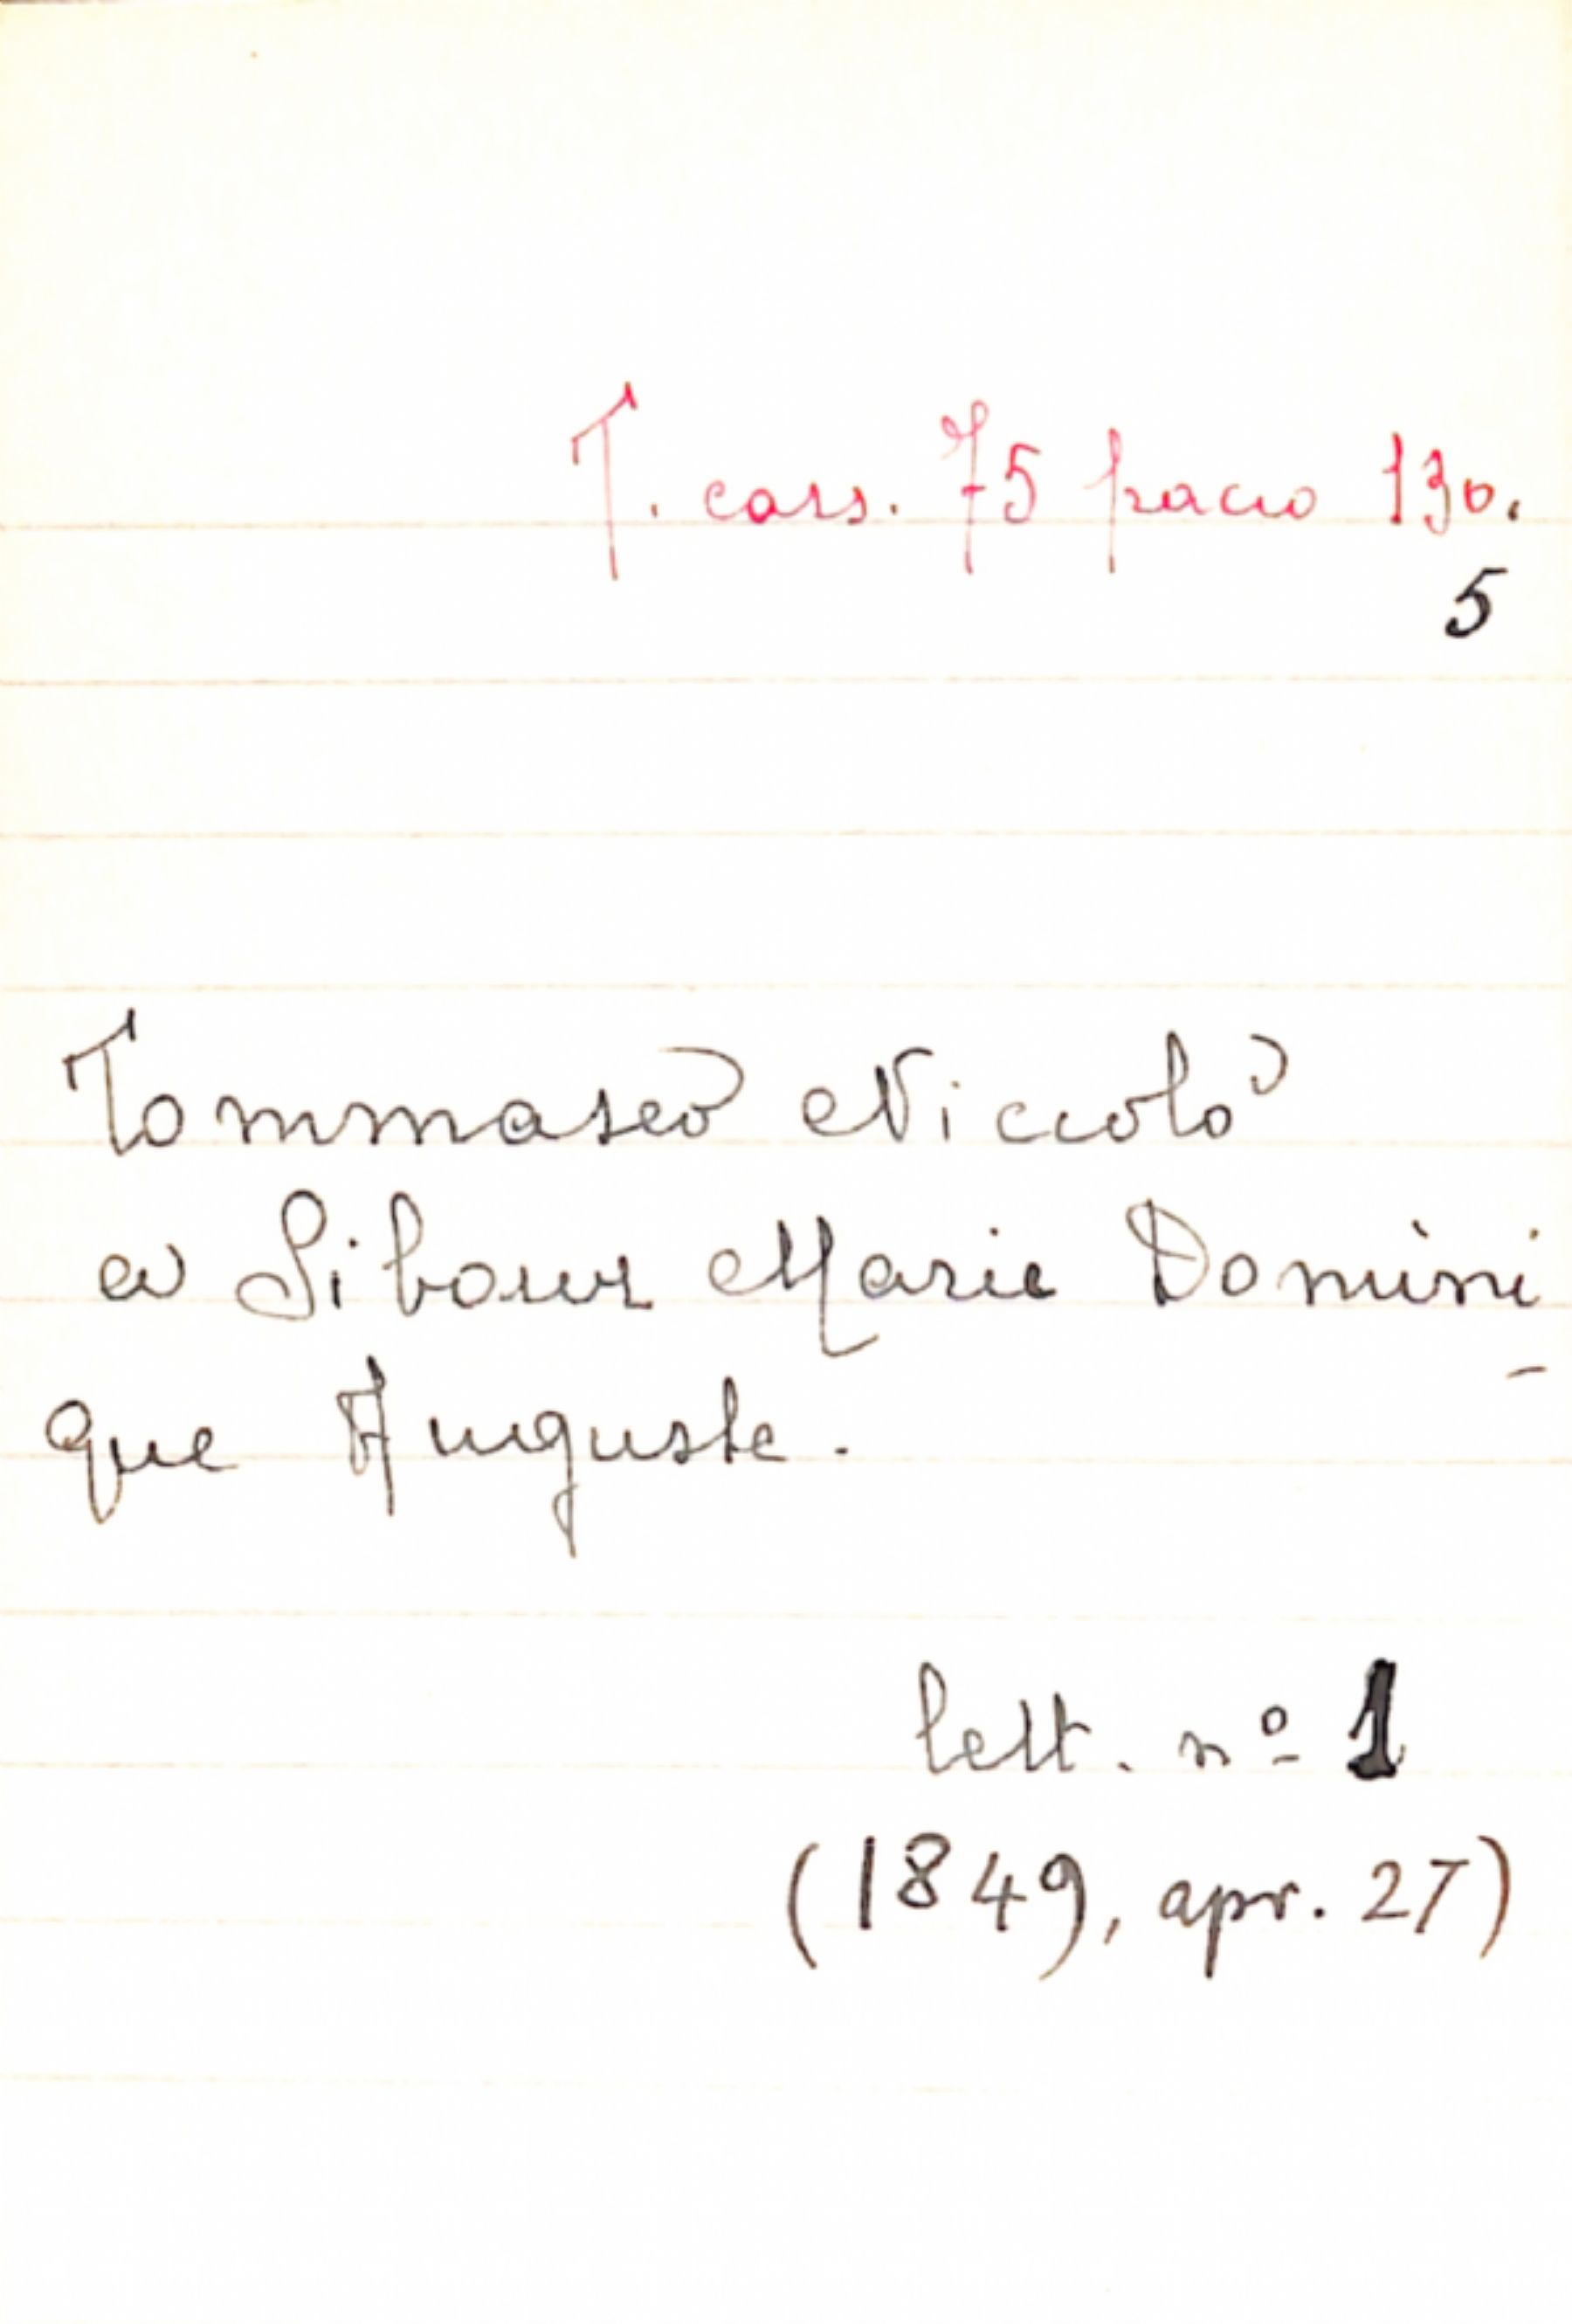 T. cass. 75 pacco 130.
5
Tommaseo Niccolò
a Sibour Marie Domini
que Auguste.
lett. nº 1
(1849, apr. 27)